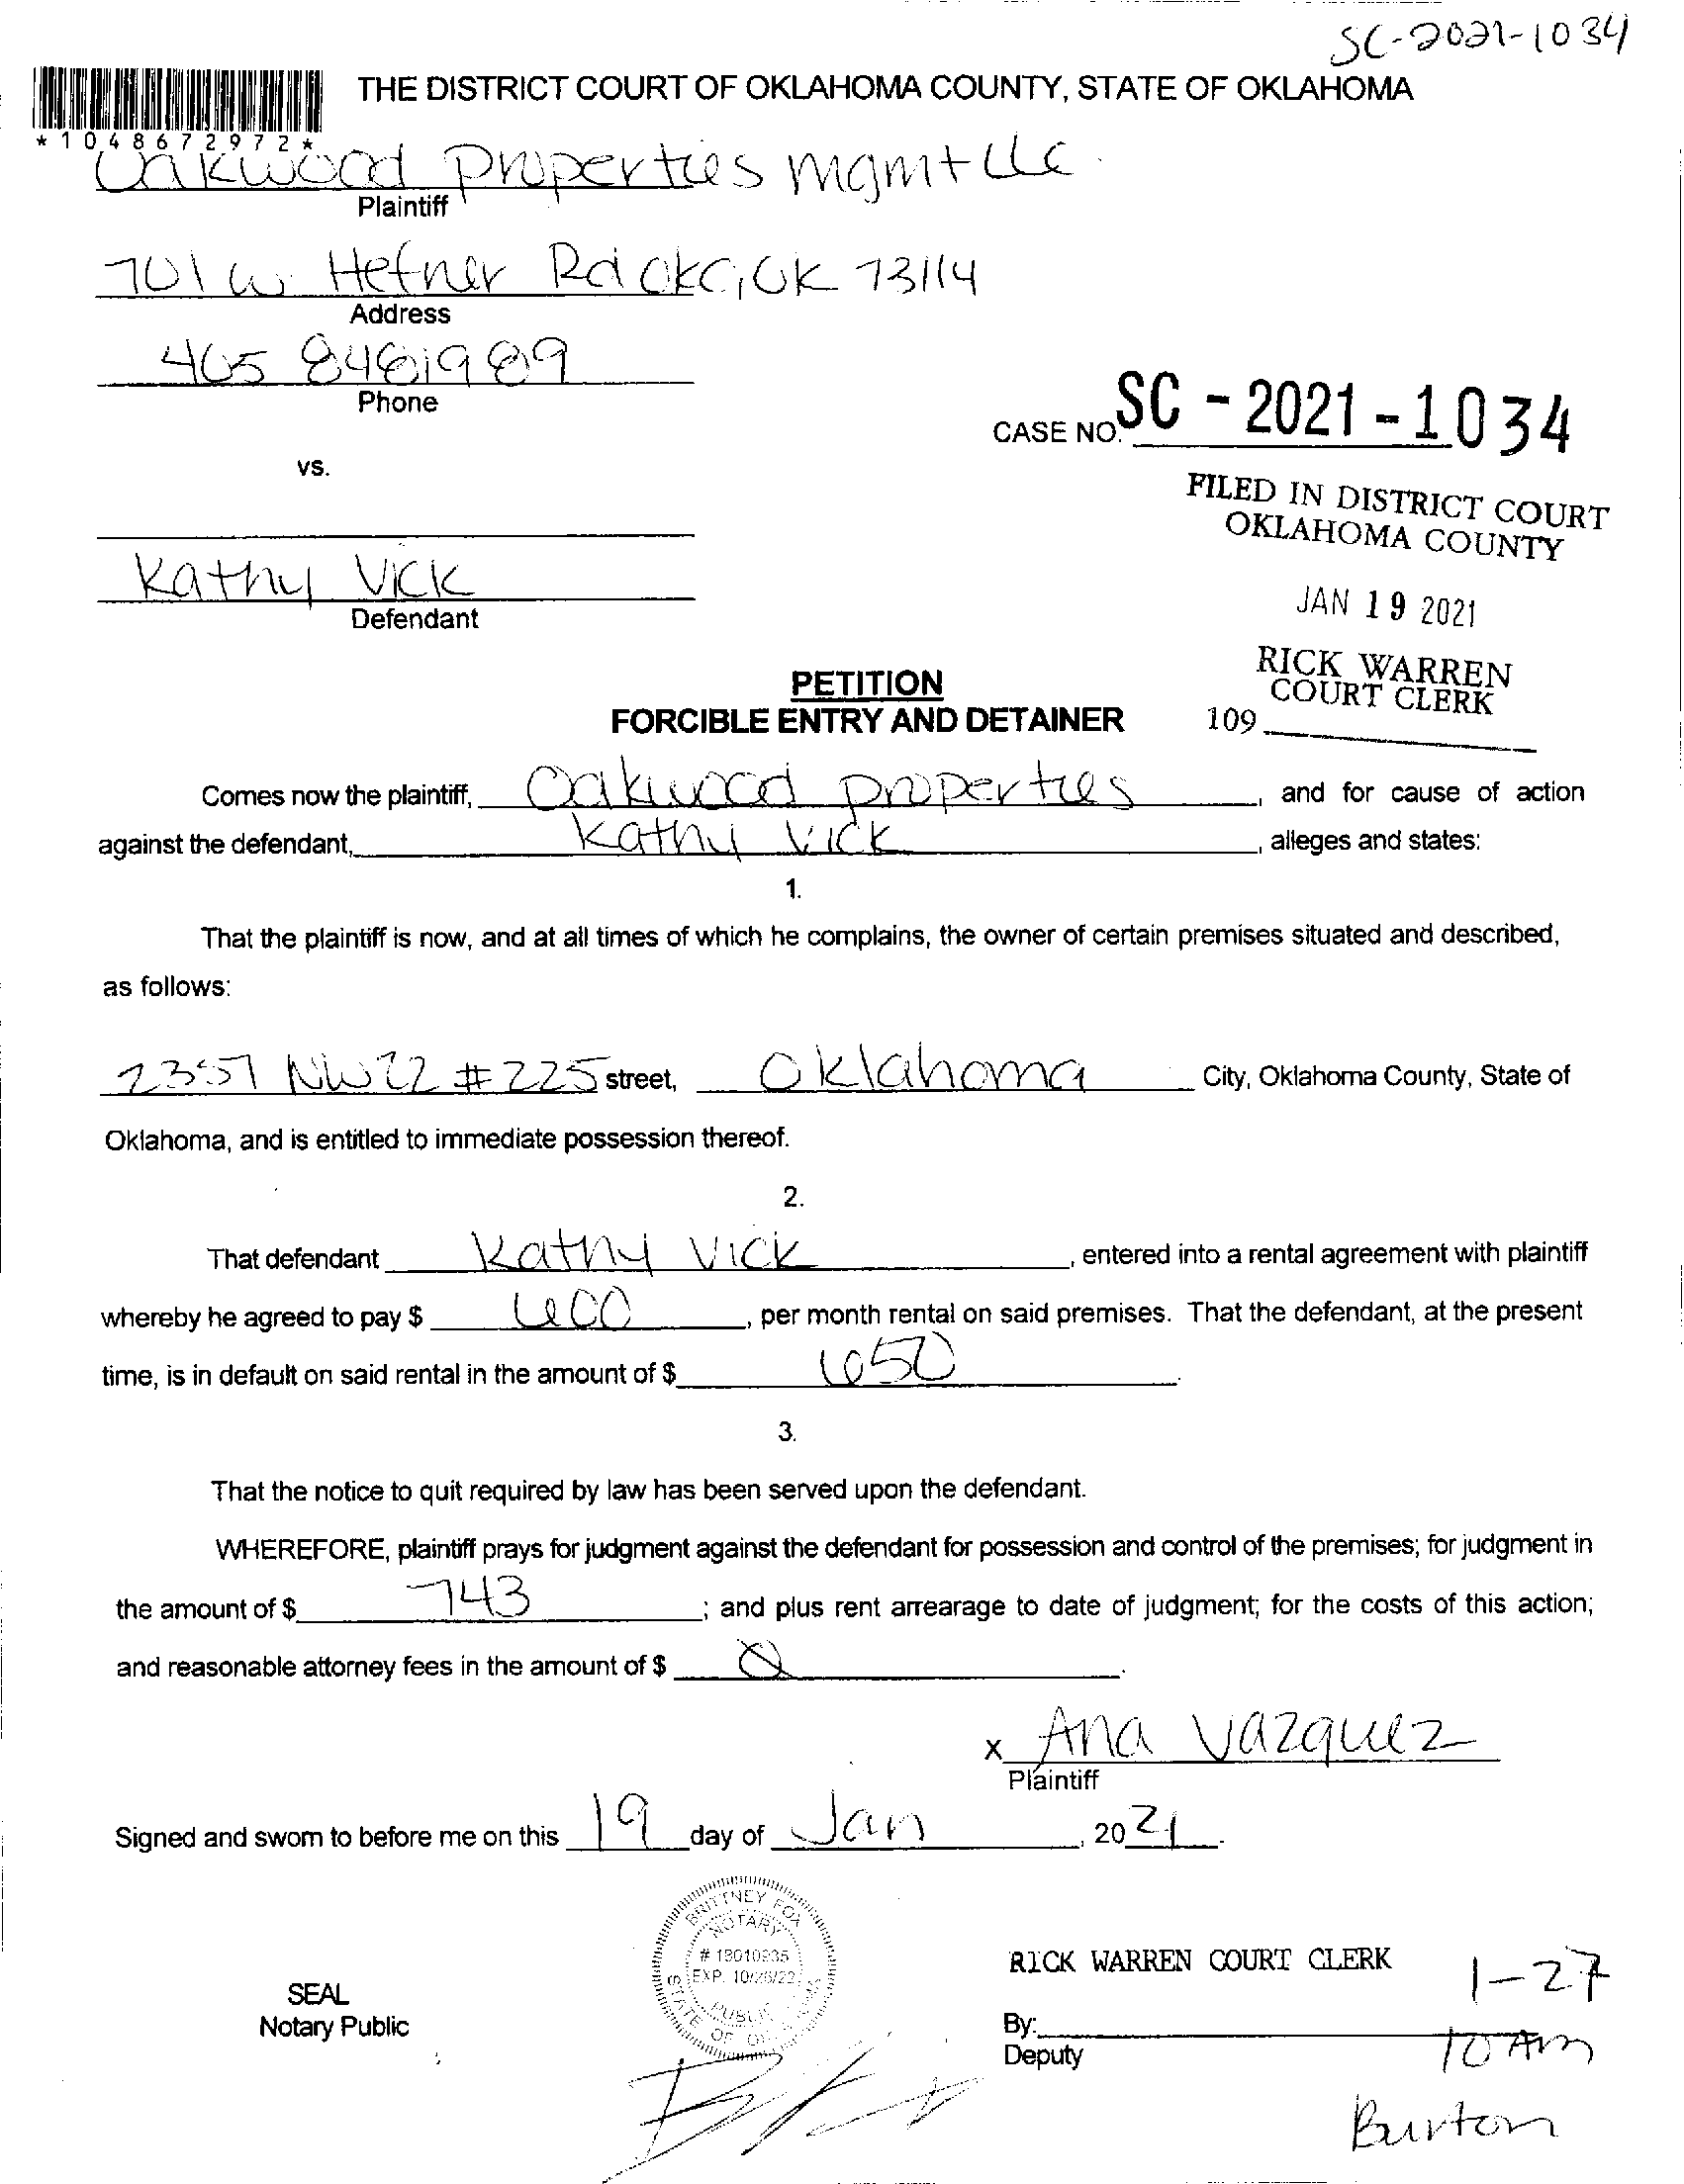 SC-2021-1034
THE DISTRICT COURT OF OKLAHOMA COUNTY, STATE OF OKLAHOMA
*1048672972*
Oakwood Properties mgmt LLC
Plaintiff
701 W. Hefner Rd OKC, OK 73114
Address
405 8481989
Phone
CASE NO. SC - 2021 - 1034
vs.
FILED IN DISTRICT COURT
OKLAHOMA COUNTY
Kathy Vick
Defendant
JAN 19 2021
RICK WARREN
COURT CLERK
109
PETITION
FORCIBLE ENTRY AND DETAINER
Comes now the plaintiff, Oakwood properties, and for cause of action
against the defendant, Kathy Vick, alleges and states:
1.
That the plaintiff is now, and at all times of which he complains, the owner of certain premises situated and described,
as follows:
2357 NW 22 #225 street, Oklahoma City, Oklahoma County, State of
Oklahoma, and is entitled to immediate possession thereof.
2.
That defendant Kathy Vick, entered into a rental agreement with plaintiff
whereby he agreed to pay $ 600, per month rental on said premises. That the defendant, at the present
time, is in default on said rental in the amount of $ 650.
3.
That the notice to quit required by law has been served upon the defendant.
WHEREFORE, plaintiff prays for judgment against the defendant for possession and control of the premises; for judgment in
the amount of $ 743; and plus rent arrearage to date of judgment; for the costs of this action;
and reasonable attorney fees in the amount of $ 0.
x Ana Vazquez
Plaintiff
Signed and sworn to before me on this 19 day of Jan, 2021.
BRITTNEY FOX
NOTARY
EXP. 10/
PUBLIC
STATE OF
SEAL
Notary Public
RICK WARREN COURT CLERK
1-27
By:
Deputy
10 AM
Burton